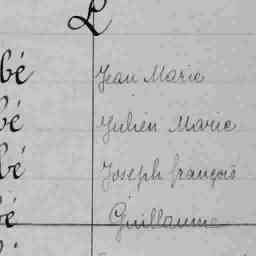 L
bé Jean Marie
bé Julien Marie
bé Joseph françois
bé Guillaume